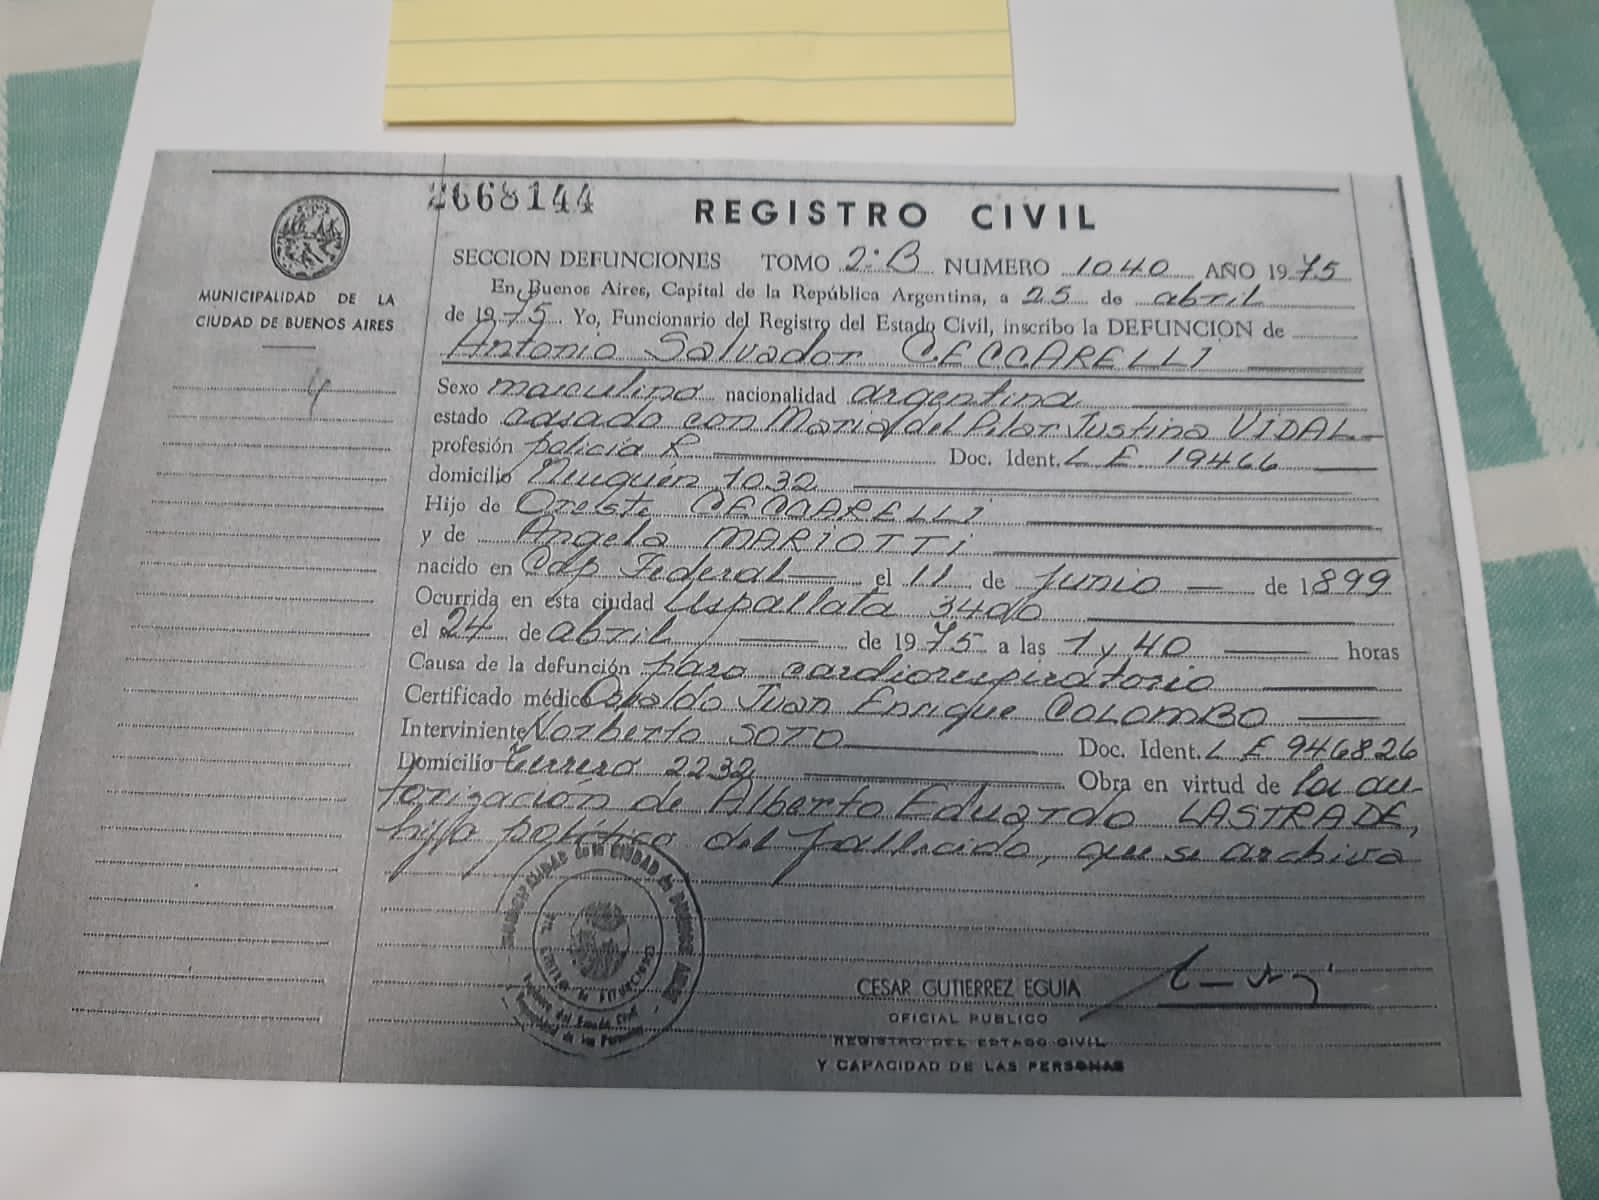 2668144
REGISTRO CIVIL
MUNICIPALIDAD DE LA
CIUDAD DE BUENOS AIRES
SECCION DEFUNCIONES TOMO 2ºB NUMERO 1040 AÑO 1975
En Buenos Aires, Capital de la República Argentina, a 25 de abril
de 1975. Yo, Funcionario del Registro del Estado Civil, inscribo la DEFUNCION de
Antonio Salvador CECCARELLI
Sexo masculino nacionalidad argentina
estado casado con Maria del Pilar Justina VIDAL
profesión policia R Doc. Ident. L E 19466
domicilio Neuquén 1032
Hijo de Oreste CECCARELLI
y de Angela MARIOTTI
nacido en Cap Federal el 11 de junio de 1899
Ocurrida en esta ciudad Uspallata 3400
el 24 de abril de 1975 a las 1 y 40 horas
Causa de la defunción paro cardiorespiratorio
Certificado médico Osvaldo Juan Enrique COLOMBO
Interviniente Norberto SOTO Doc. Ident. L E 946826
Domicilio Ferrero 2232 Obra en virtud de la au-
torización de Alberto Eduardo LASTRADE,
hijo político del fallecido, que se archiva
MUNICIPALIDAD DE LA CIUDAD DE BUENOS AIRES
CESAR GUTIERREZ EGUIA
OFICIAL PUBLICO
REGISTRO DEL ESTADO CIVIL
Y CAPACIDAD DE LAS PERSONAS